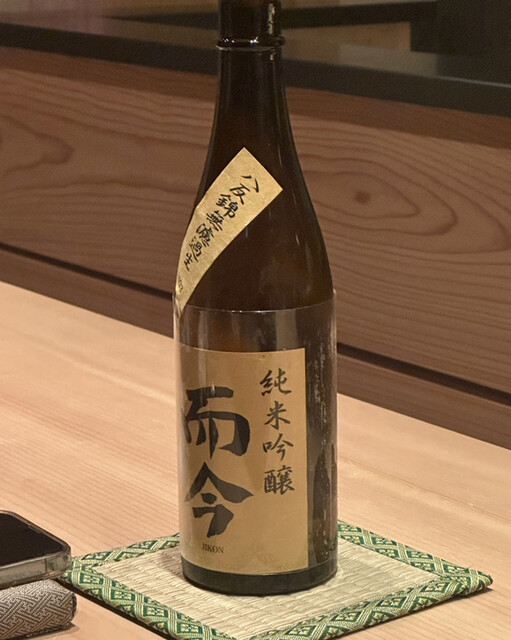 八反錦無濾過生
純米吟醸
而今
JIKON